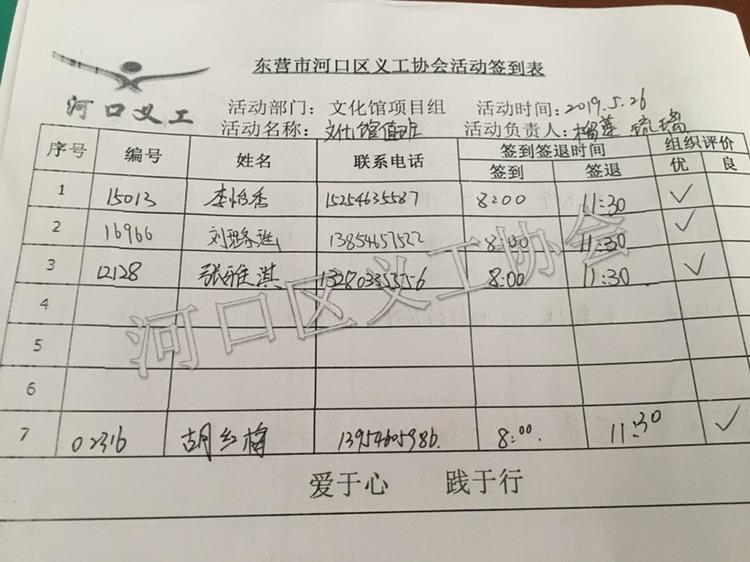 东营市河口区义工协会活动签到表
河口义工
活动部门：文化馆项目组 活动时间：2019.5.26
活动名称：文化馆值班 活动负责人：榴莲 琉璃
序号 编号 姓名 联系电话 签到签退时间 组织评价
签到 签退 优 良
1 15013 李怡香 15254635587 8:00 11:30 ✓
2 16966 刘 13854657522 8:00 11:30 ✓
3 12128 张雅淇 13280335556 8:00 11:30 ✓
4
5
6
7 02316 胡红梅 13954605986. 8:00. 11:30 ✓
爱于心 践于行
河口区义工协会